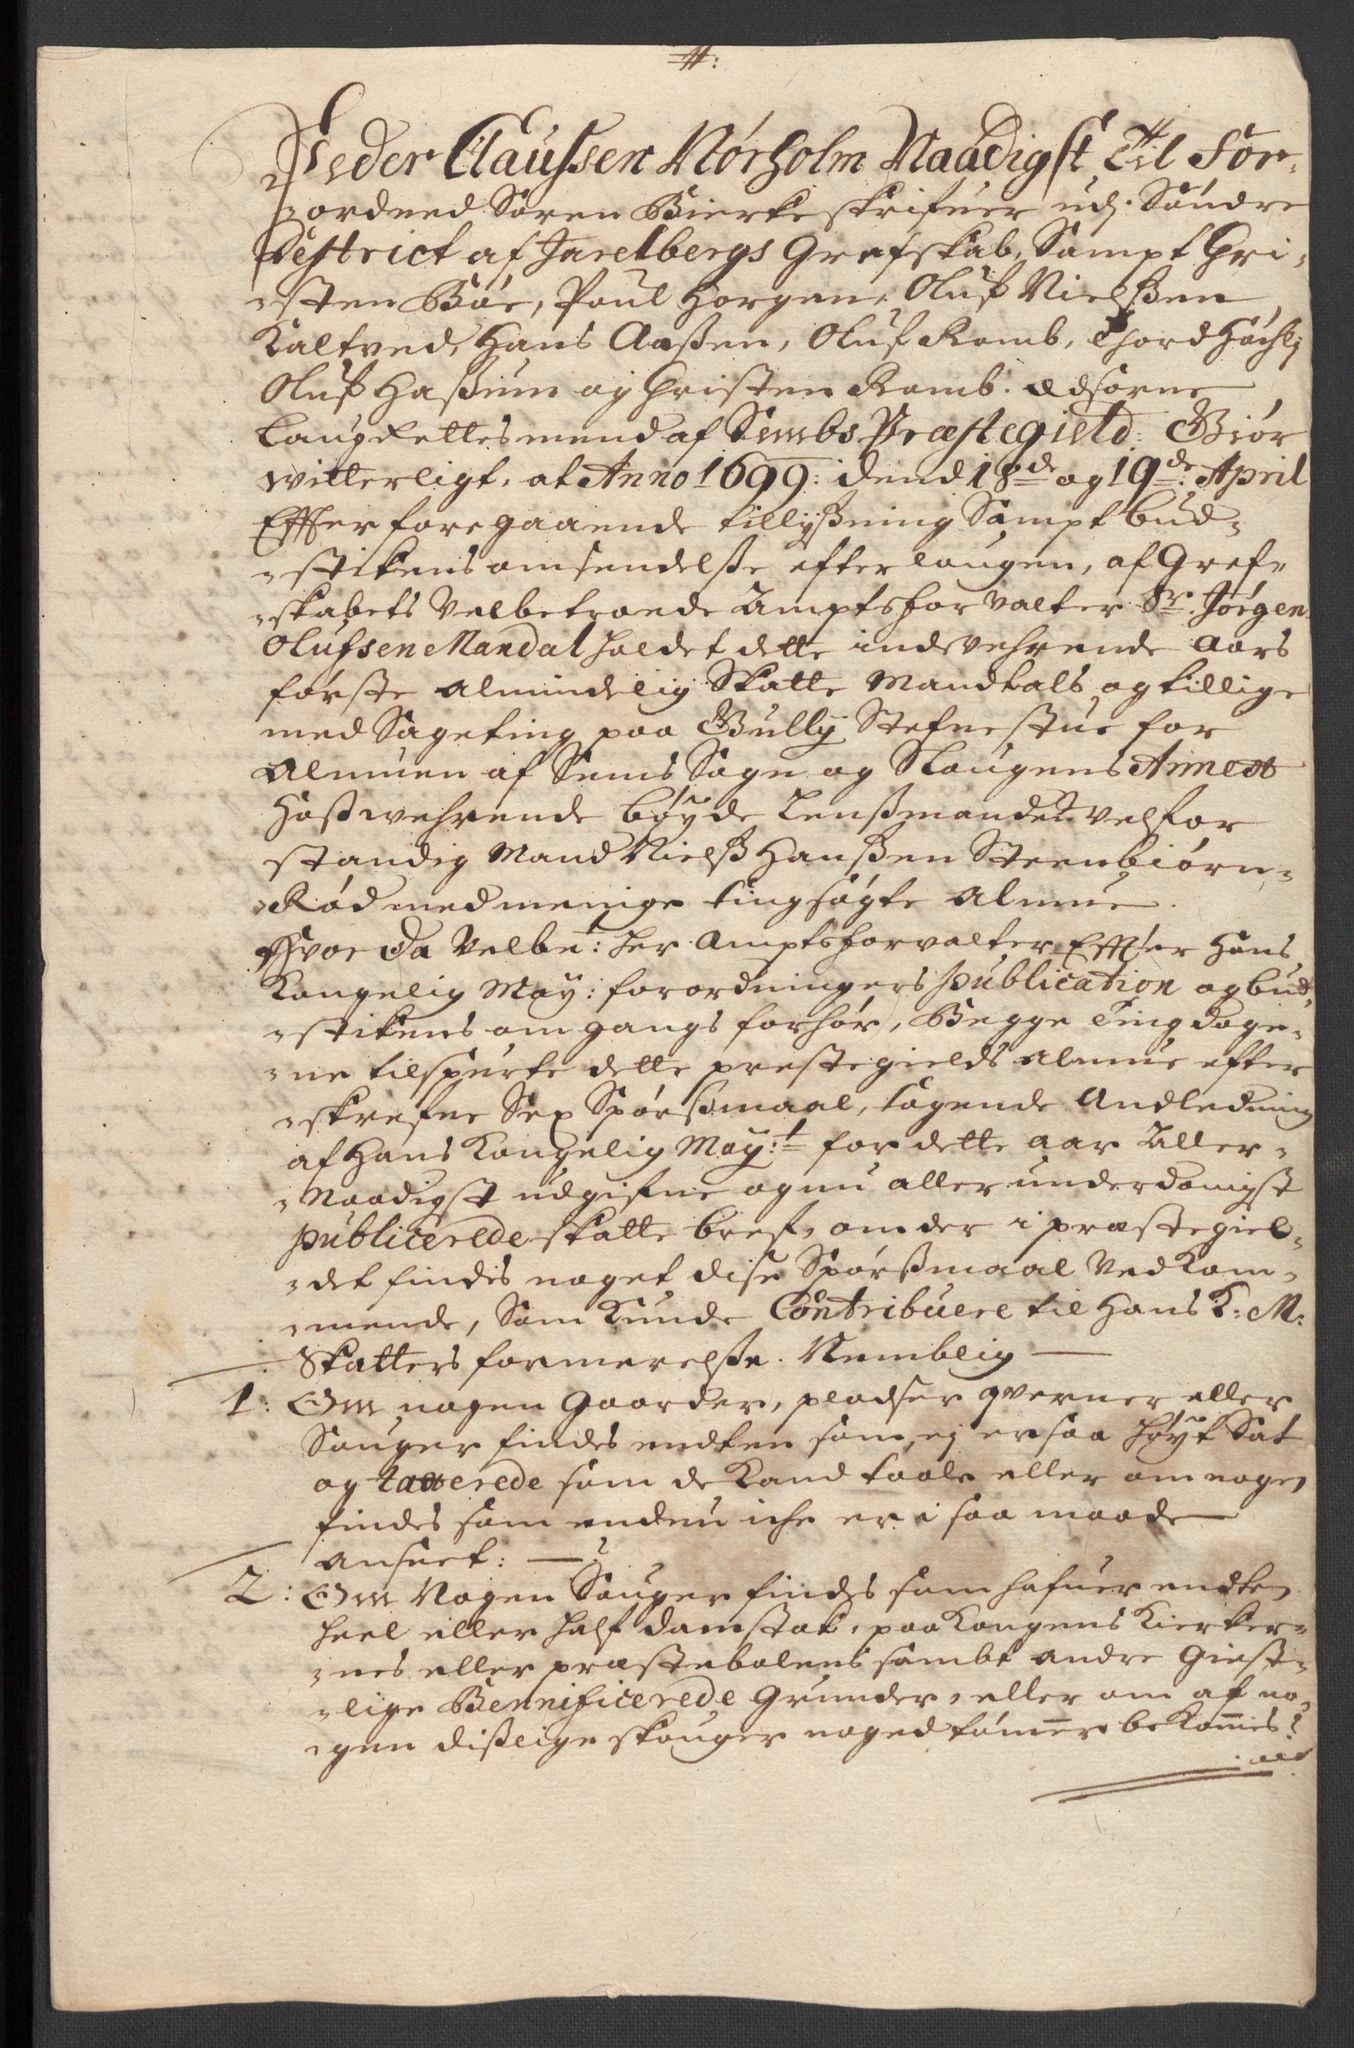 #:
Peder Claussen Nørholm Naadigst Til For-
-ordned Soren Birke skrifuer udj Søndre
Destrict af Jarelbergs Grefskab, Sampt Chri-
-sten Bøe, Poul Horgen, Oluf Nielssen
Kaltved, Hans Aassen, Oluf Ramb, Thord
Oluf Hassum og Christen Ramb. Edsorne
Laugrettesmend af Sembs Præstegield: Giør
witterligt, at Anno 1699: dend 18de og 19de: April
Effter foregaaende tillyssning Sampt bud-
-stikens omsendelsse efter lougen, af Gref-
-skabets Velbetroede Amptsforvalter Sr: Jørgen
Olufsen Mandal holdet dette indeVehrende Aars
første almindelig Skatte Mandtals og tillige
med Sageting paa Gullj Stefnestue for
Almuen af Sems Sogn og Slaugens Annex
Hoss wehrende bøyde Lenssmanden velfor
standig Mand Nielss Hanssen Steenbiørn-
-Rød med menige tingsøgte Almue.
Hvor Da Velbe:t Her Amptsforvalter Effter Hans
Kongelig May: forordningers publication og bud-
-stikens omgangs forhør, Begge Ting dage-
-ne tilspurte dette prestegields almue efter
-skrefne Sex Spørssmaal, tagende Andledning
af Hans Kongelig May:t for dette aar Aller-
-Naadigst udgifne og nu allerunderdanigst
publicerede skatte bref, om der i præstegiel-
-det findis noget dise Spørssmaal VedKom-
-mende, Som Kunde Contribuere til Hans K: M:
Skatters formerelsse. Nemblig
1: Om nogen Gaarder, pladser qverner eller
Sauger findes endten som ej er saa høyt Sat
og taxerede som de Kand taale eller om nogen
findes som endnu iche er i saa maade
anseet:
2: Om Nogen Sauger findes som hafuer endten
heel eller half damstok, paa Kongens Kierker-
-nes eller præstebolens sambt andre Giest-
-lige Bennificerede Grunder, eller om af no-
-gen disslige skouger noged tømmer beKommes?